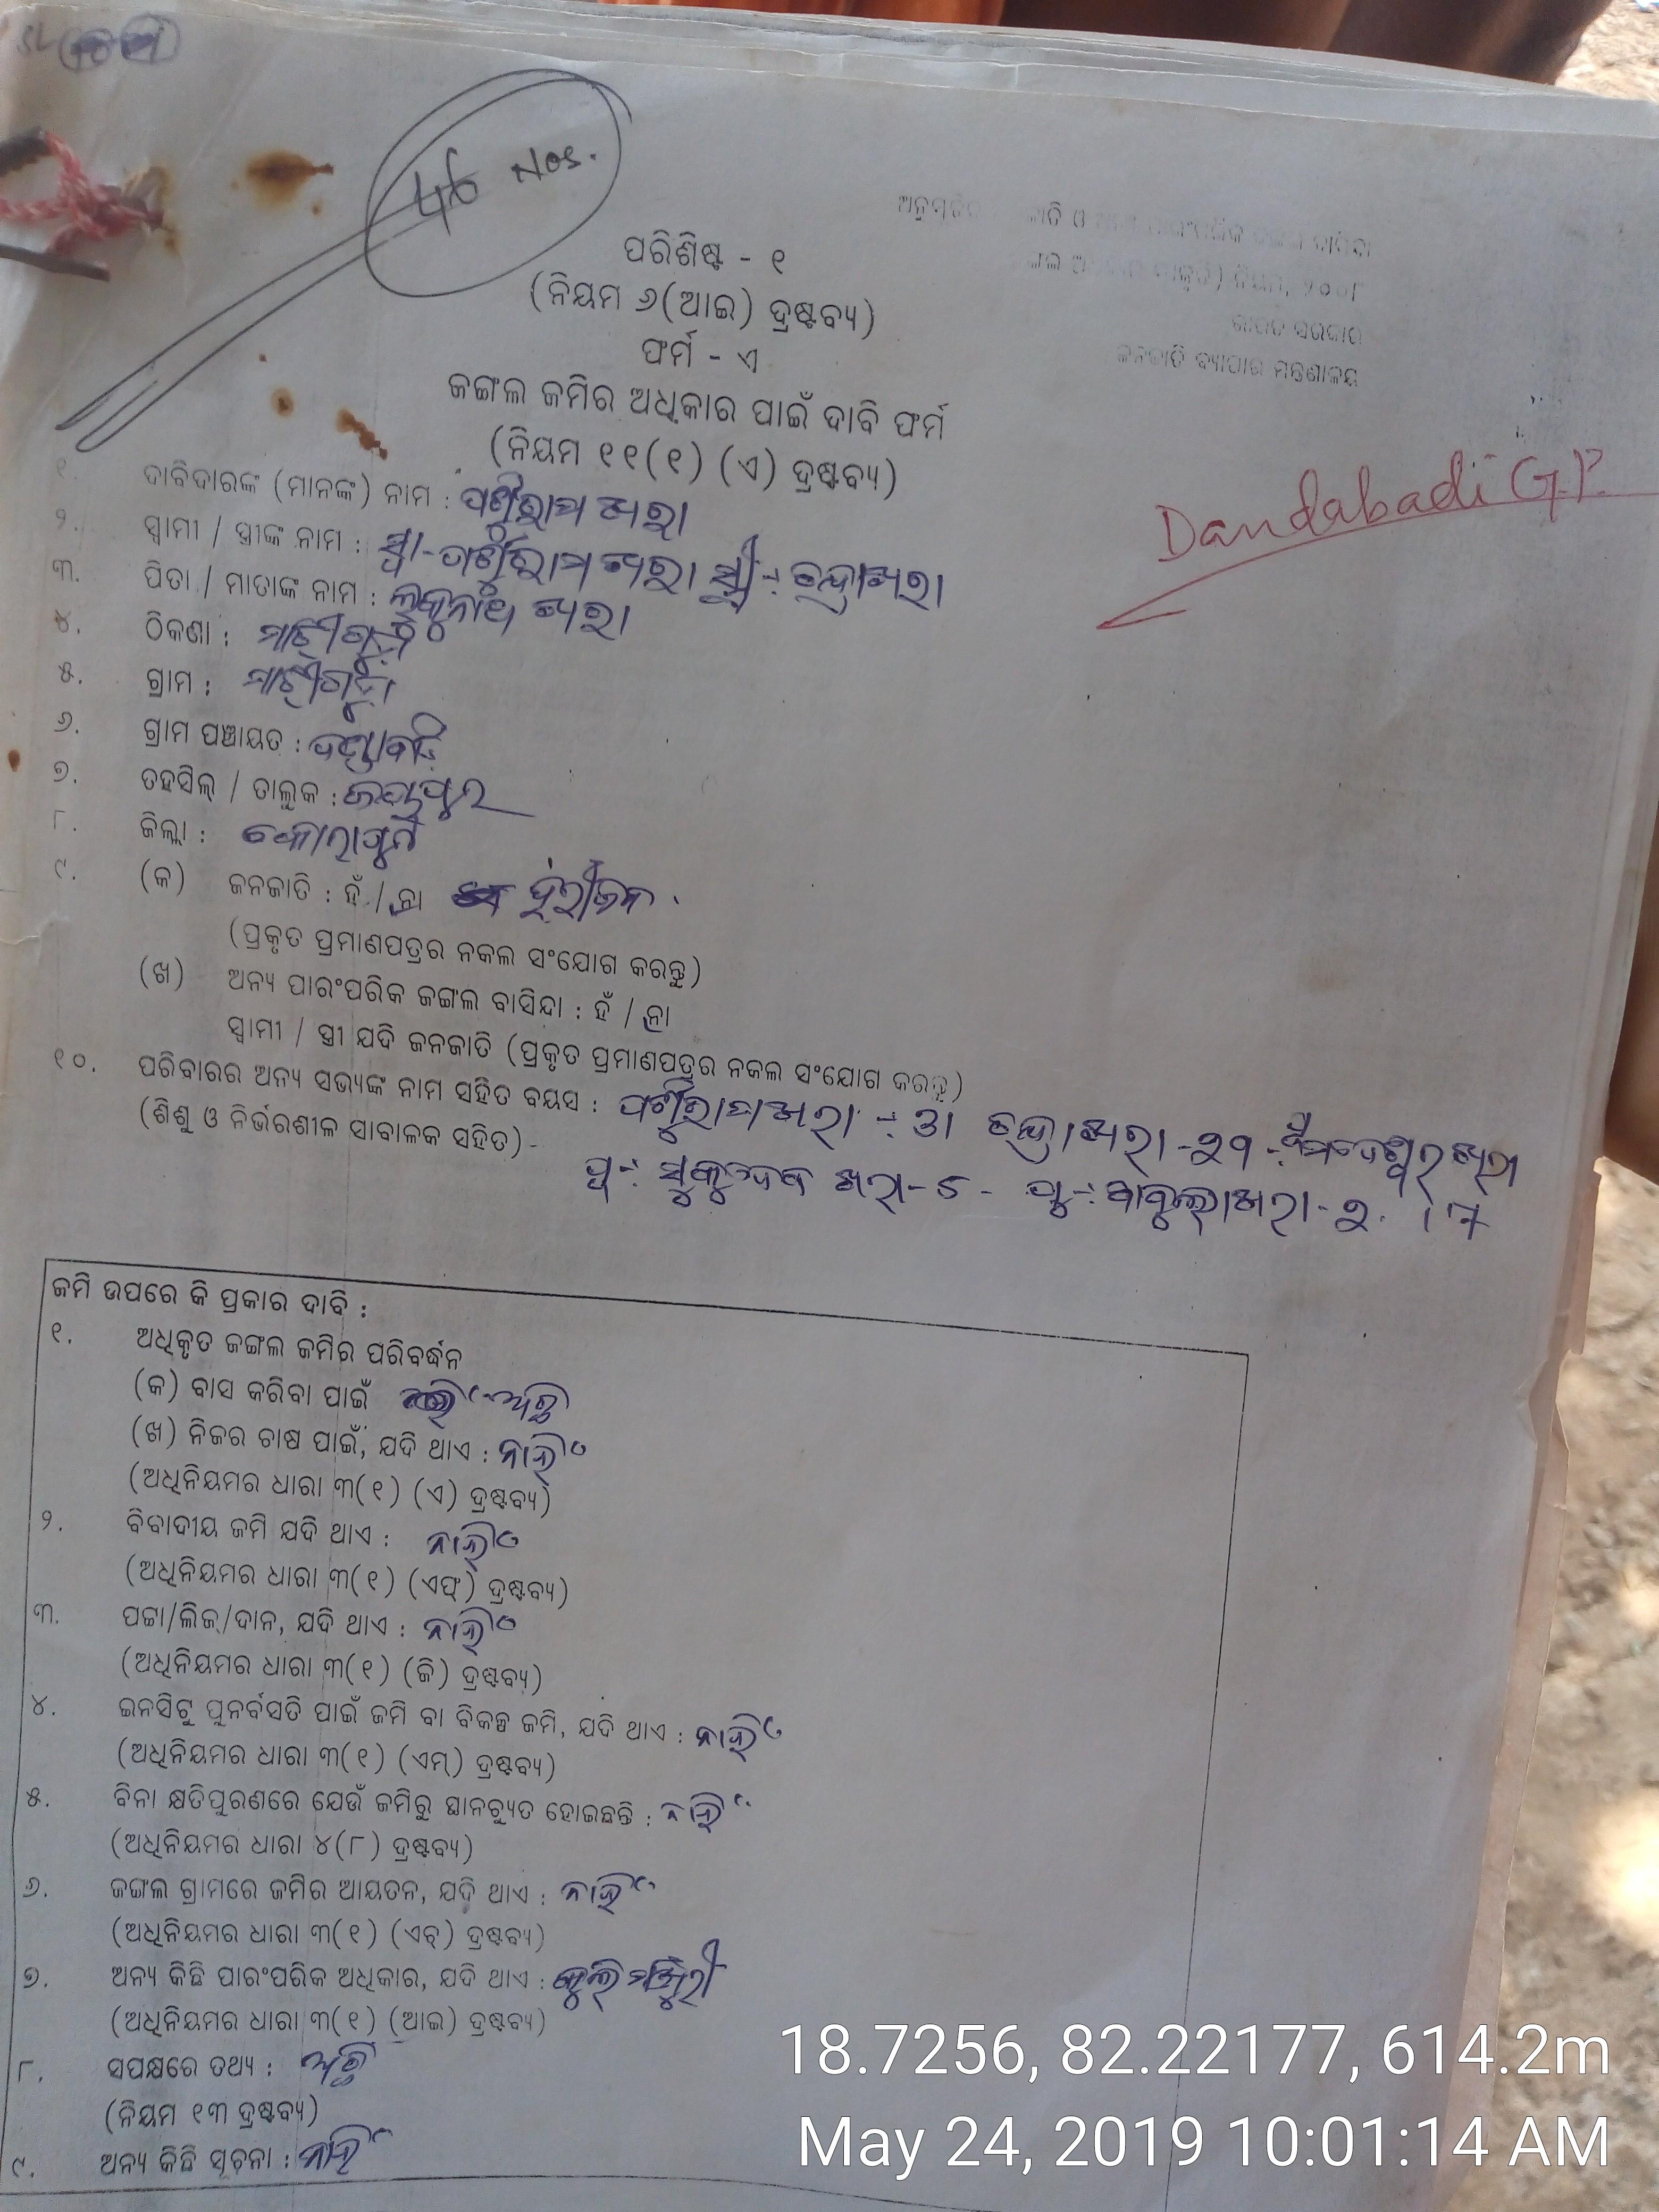 46 Nos.
ପରିଶିଷ୍ଟ - ୧
(ନିୟମ ୬(ଆଇ) ଦ୍ରଷ୍ଟବ୍ୟ)
ଫର୍ମ - ଏ
ଜଙ୍ଗଲ ଜମିର ଅଧିକାର ପାଇଁ ଦାବି ଫର୍ମ
(ନିୟମ ୧୧(୧) (ଏ) ଦ୍ରଷ୍ଟବ୍ୟ)
ଭାରତ ସରକାର
ଜନଜାତି ବ୍ୟାପାର ମନ୍ତ୍ରଣାଳୟ
Dandabadi G.P.
୧. ଦାବିଦାରଙ୍କ (ମାନଙ୍କ) ନାମ : ଖରା
୨. ସ୍ୱାମୀ / ସ୍ତ୍ରୀଙ୍କ ନାମ : ସ୍ୱା- ଖରା ସ୍ତ୍ରୀ-: ଚନ୍ଦ୍ରା ଖରା
୩. ପିତା / ମାତାଙ୍କ ନାମ : ଖରା
୪. ଠିକଣା :
୫. ଗ୍ରାମ :
୬. ଗ୍ରାମ ପଞ୍ଚାୟତ : ଦଣ୍ଡାବାଡି
୭. ତହସିଲ୍ / ତାଲୁକ : ଜୟପୁର
୮. ଜିଲ୍ଲା : କୋରାପୁଟ
୯. (କ) ଜନଜାତି : ହଁ / ନା ହରିଜନ
(ପ୍ରକୃତ ପ୍ରମାଣପତ୍ରର ନକଲ ସଂଯୋଗ କରନ୍ତୁ)
(ଖ) ଅନ୍ୟ ପାରଂପରିକ ଜଙ୍ଗଲ ବାସିନ୍ଦା : ହଁ / ନା
ସ୍ୱାମୀ / ସ୍ତ୍ରୀ ଯଦି ଜନଜାତି (ପ୍ରକୃତ ପ୍ରମାଣପତ୍ରର ନକଲ ସଂଯୋଗ କରନ୍ତୁ)
୧୦. ପରିବାରର ଅନ୍ୟ ସଭ୍ୟଙ୍କ ନାମ ସହିତ ବୟସ : ଖରା ଚନ୍ଦ୍ରା ଖରା - ୨୭
(ଶିଶୁ ଓ ନିର୍ଭରଶୀଳ ସାବାଳକ ସହିତ) - ଖରା - ୫ - ଖରା - ୨
ଜମି ଉପରେ କି ପ୍ରକାର ଦାବି :
୧. ଅଧିକୃତ ଜଙ୍ଗଲ ଜମିର ପରିବର୍ଦ୍ଧନ
(କ) ବାସ କରିବା ପାଇଁ ଅଛି
(ଖ) ନିଜର ଚାଷ ପାଇଁ, ଯଦି ଥାଏ : ନାହିଁ
(ଅଧିନିୟମର ଧାରା ୩(୧) (ଏ) ଦ୍ରଷ୍ଟବ୍ୟ)
୨. ବିବାଦୀୟ ଜମି ଯଦି ଥାଏ : ନାହିଁ
(ଅଧିନିୟମର ଧାରା ୩(୧) (ଏଫ୍) ଦ୍ରଷ୍ଟବ୍ୟ)
୩. ପଟ୍ଟା/ଲିଜ୍/ଦାନ, ଯଦି ଥାଏ : ନାହିଁ
(ଅଧିନିୟମର ଧାରା ୩(୧) (ଜି) ଦ୍ରଷ୍ଟବ୍ୟ)
୪. ଇନସିଟୁ ପୁନର୍ବସତି ପାଇଁ ଜମି ବା ବିକଳ୍ପ ଜମି, ଯଦି ଥାଏ : ନାହିଁ
(ଅଧିନିୟମର ଧାରା ୩(୧) (ଏମ୍) ଦ୍ରଷ୍ଟବ୍ୟ)
୫. ବିନା କ୍ଷତିପୁରଣରେ ଯେଉଁ ଜମିରୁ ସ୍ଥାନଚ୍ୟୁତ ହୋଇଛନ୍ତି : ନାହିଁ
(ଅଧିନିୟମର ଧାରା ୪(୮) ଦ୍ରଷ୍ଟବ୍ୟ)
୬. ଜଙ୍ଗଲ ଗ୍ରାମରେ ଜମିର ଆୟତନ, ଯଦି ଥାଏ : ନାହିଁ
(ଅଧିନିୟମର ଧାରା ୩(୧) (ଏଚ୍) ଦ୍ରଷ୍ଟବ୍ୟ)
୭. ଅନ୍ୟ କିଛି ପାରଂପରିକ ଅଧିକାର, ଯଦି ଥାଏ :
(ଅଧିନିୟମର ଧାରା ୩(୧) (ଆଇ) ଦ୍ରଷ୍ଟବ୍ୟ)
୮. ସପକ୍ଷରେ ତଥ୍ୟ : ଅଛି
(ନିୟମ ୧୩ ଦ୍ରଷ୍ଟବ୍ୟ)
୯. ଅନ୍ୟ କିଛି ସୂଚନା : ନାହିଁ
18.7256, 82.22177, 614.2m
May 24, 2019 10:01:14 AM